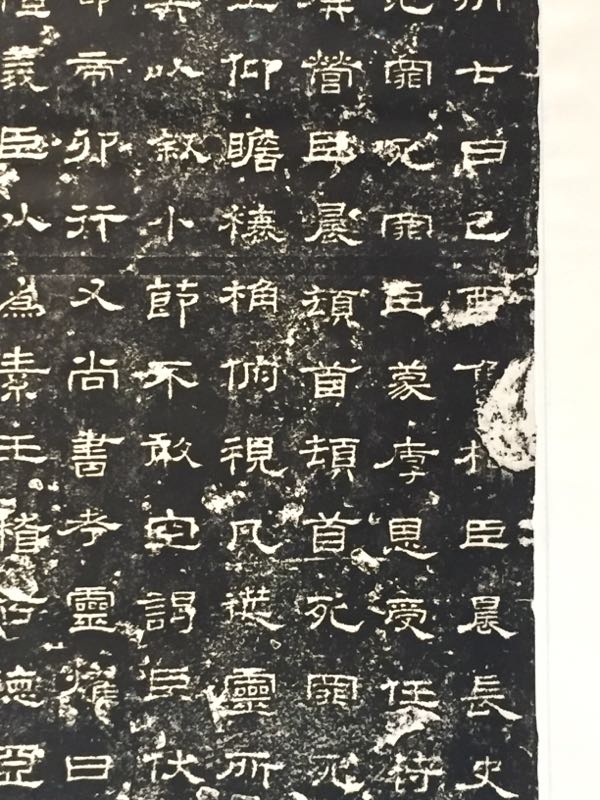 七日己酉魯相臣晨長史
罪死罪臣蒙厚恩受任符
營臣晨頓首頓首死罪死
仰瞻榱桷俯視几筵靈所
以叙小節不敢空謁臣伏
帝卯行又尚書考靈燿曰
義臣以為素王稽古德亞